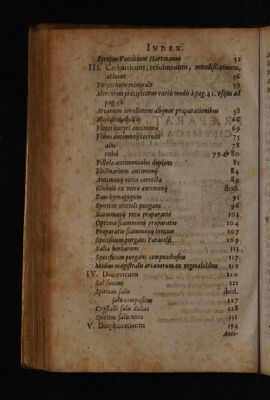 INDEX.
Syrupus Emeticus Hartmanni 32
III. Catharticum, resolutivum, mundificativum,
abluens 36
Turpetum minerale 39
Mercurius præcipitatus variis modis à pag. 41. usque ad
pag. 58
Arcanum corallinum aliquot præparationibus 58
66
Flores butyri antimonij 69
Flores antimonij correcti 75
albi 78
rubei 79. & 80
Pillula antimoniales duplices 81
Electuarium antimonij 84
Antimonij vitra correcta 89
Globulus ex vitro antimonij ibid.
Panchymagogum 91
Spiritus vitrioli purgans 96
Scammonij vera præparatio 103
Optima scammonij præparatio 104
Præparatio scammonij brevior 107
Specificum purgans Paracelsi 109
Salia herbarum 113
Specificum purgans compendiosum 117
Modus magistralis arcanorum ex vegetabilibus 119
IV. Diureticum 120
Sal succini 121
Spiritus salis ibid.
salis compositus 127
Crystalli salis dulces 128
Spiritus salis nitri 131
V. Diaphoreticum 134
Anti-